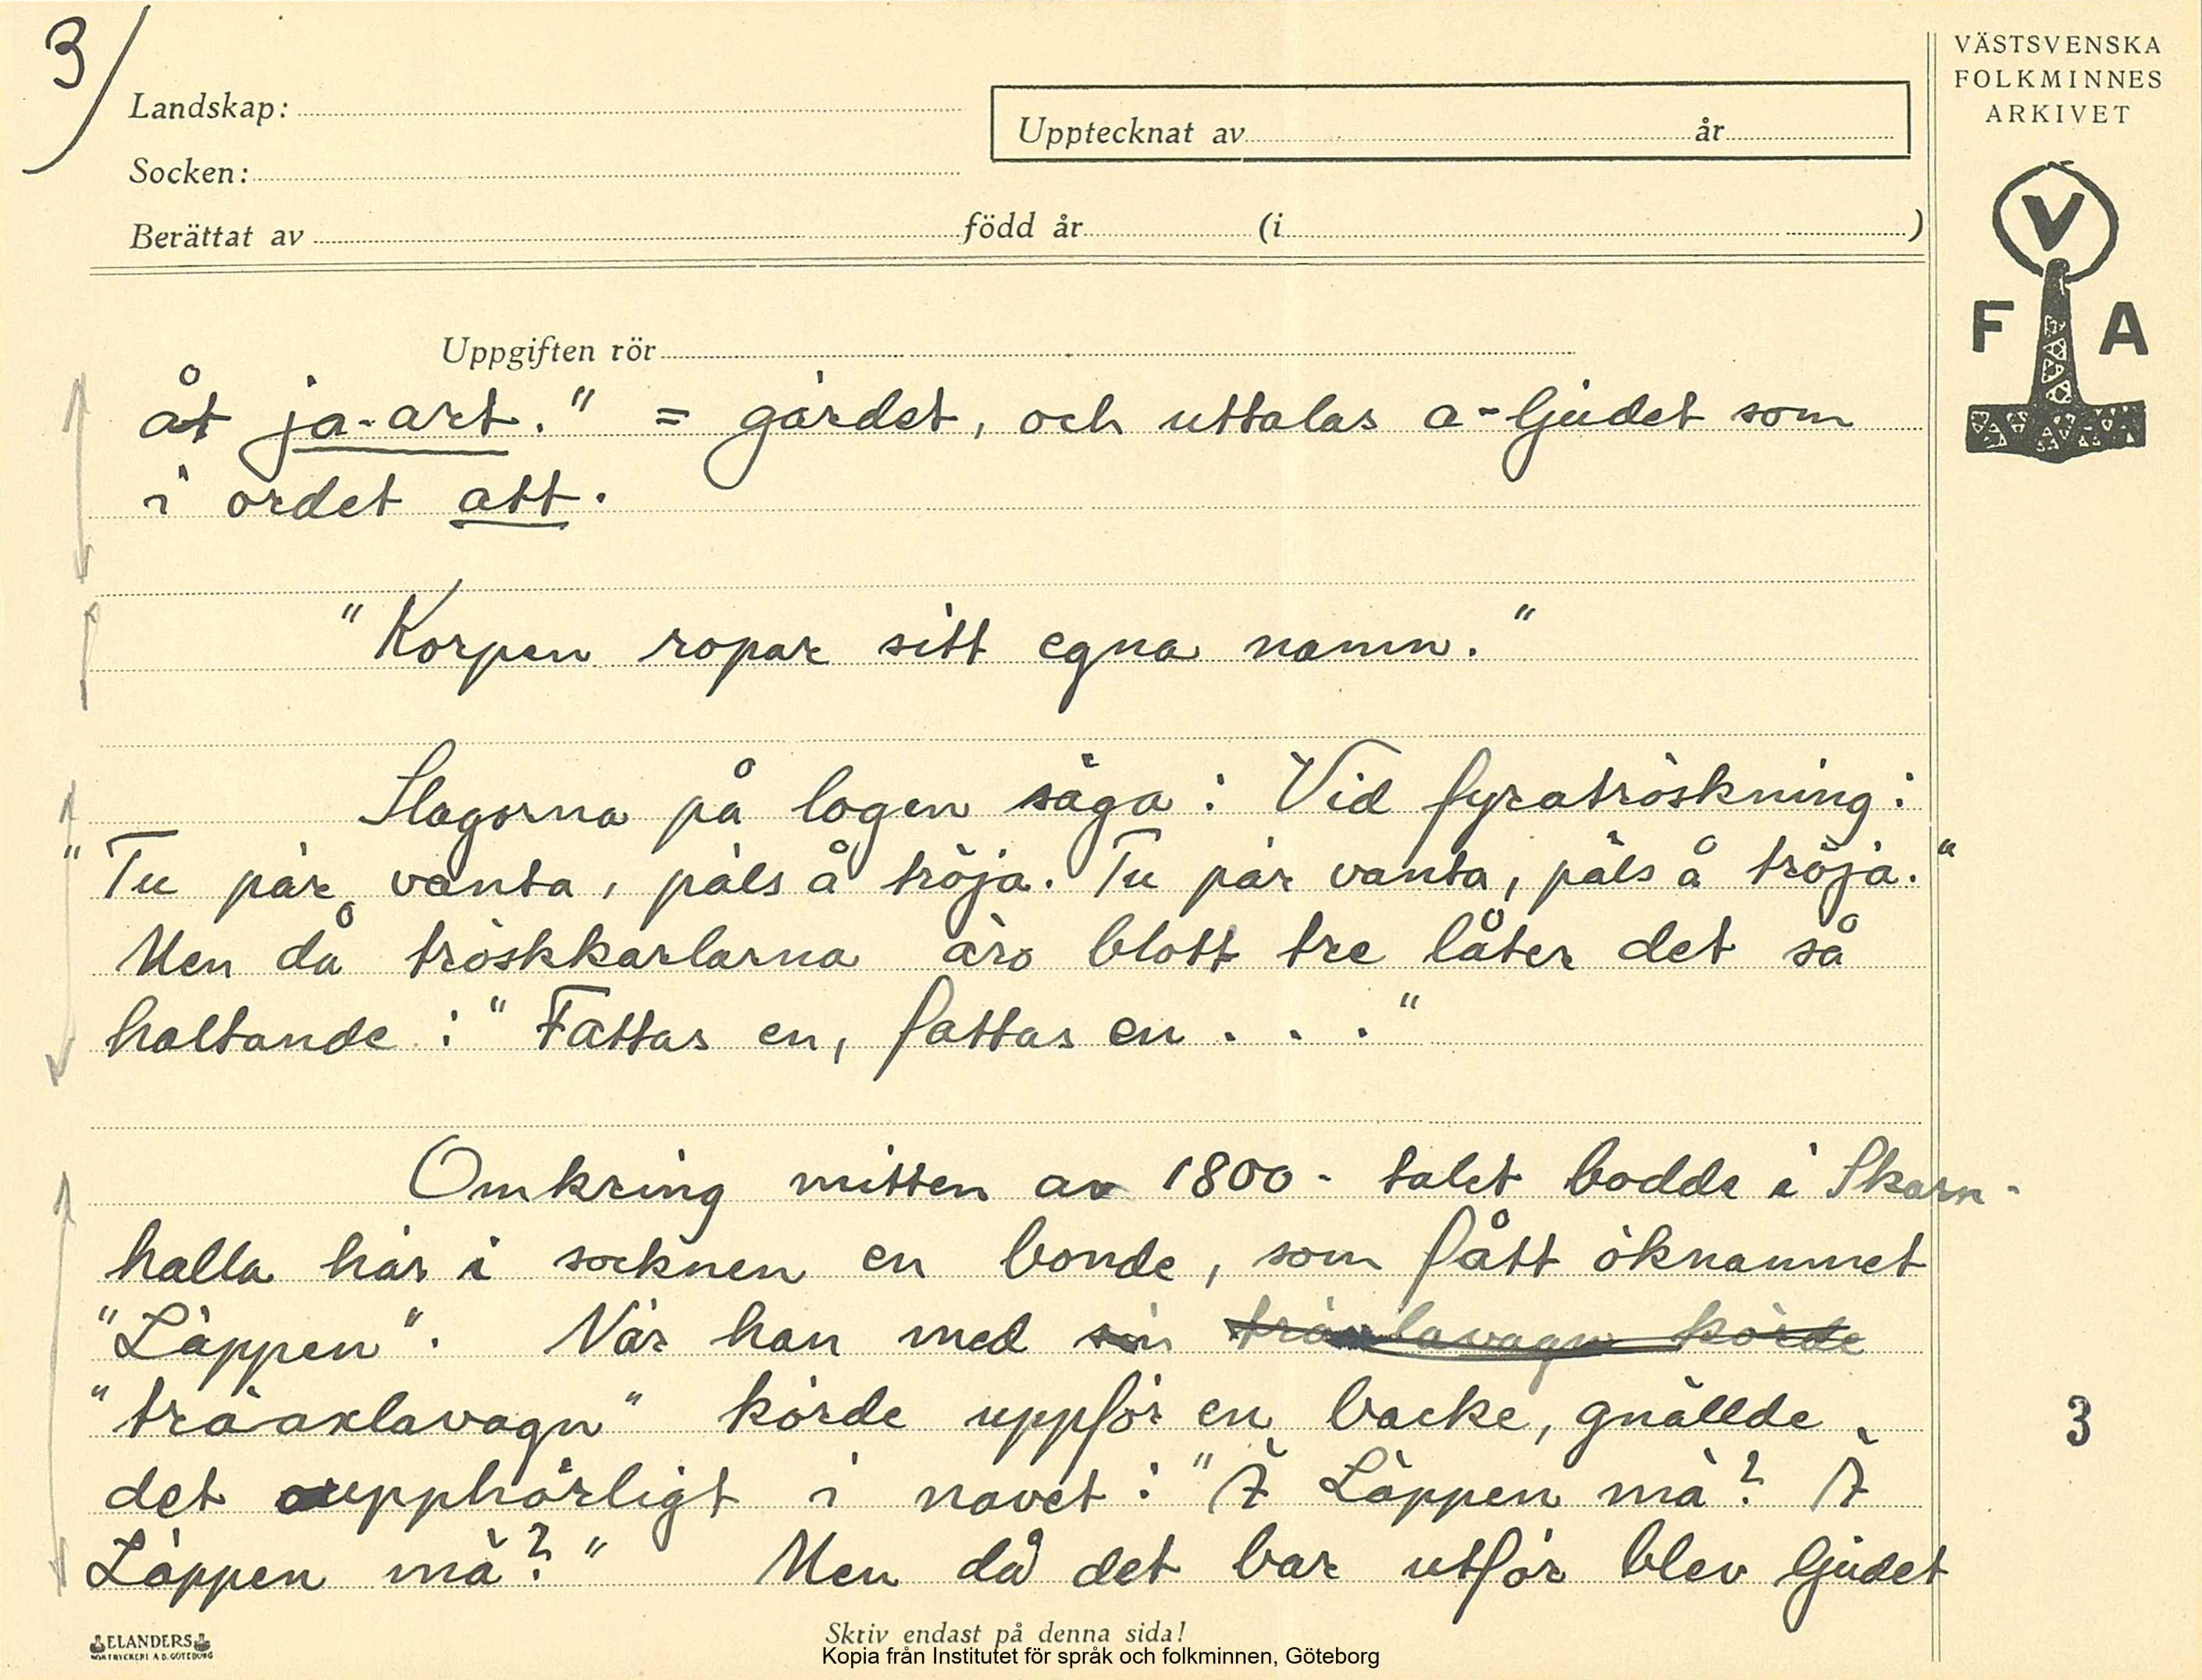 3/
VÄSTSVENSKA
FOLKMINNES
ARKIVET
Landskap:
Upptecknat av år
Socken:
Berättat av född år (i )
V
F A
Uppgiften rör
åt ja-art." = gärdet, och uttalas a-ljudet som
i ordet att.
"Korpen ropar sitt egna namn."
Slagorna på logen säga: Vid fyratröskning:
"Tu pär vanta, päls å tröja. Tu pär vanta, päls å tröja."
Men då tröskkarlarna äro blott tre låter det så
haltande: "Fattas en, fattas en . . ."
Omkring mitten av 1800-talet bodde i Skarn-
halla här i socknen en bonde, som fått öknamnet
"Läppen". När han med sin träaxlavagn körde
"träaxlavagn" körde uppför en backe, gnällde
det oupphörligt i navet: "Ä Läppen mä? Ä
Läppen mä?" Men då det bar utför blev ljudet
3
ELANDERS
BOKTRYCKERI A.B. GÖTEBORG
Skriv endast på denna sida!
Kopia från Institutet för språk och folkminnen, Göteborg